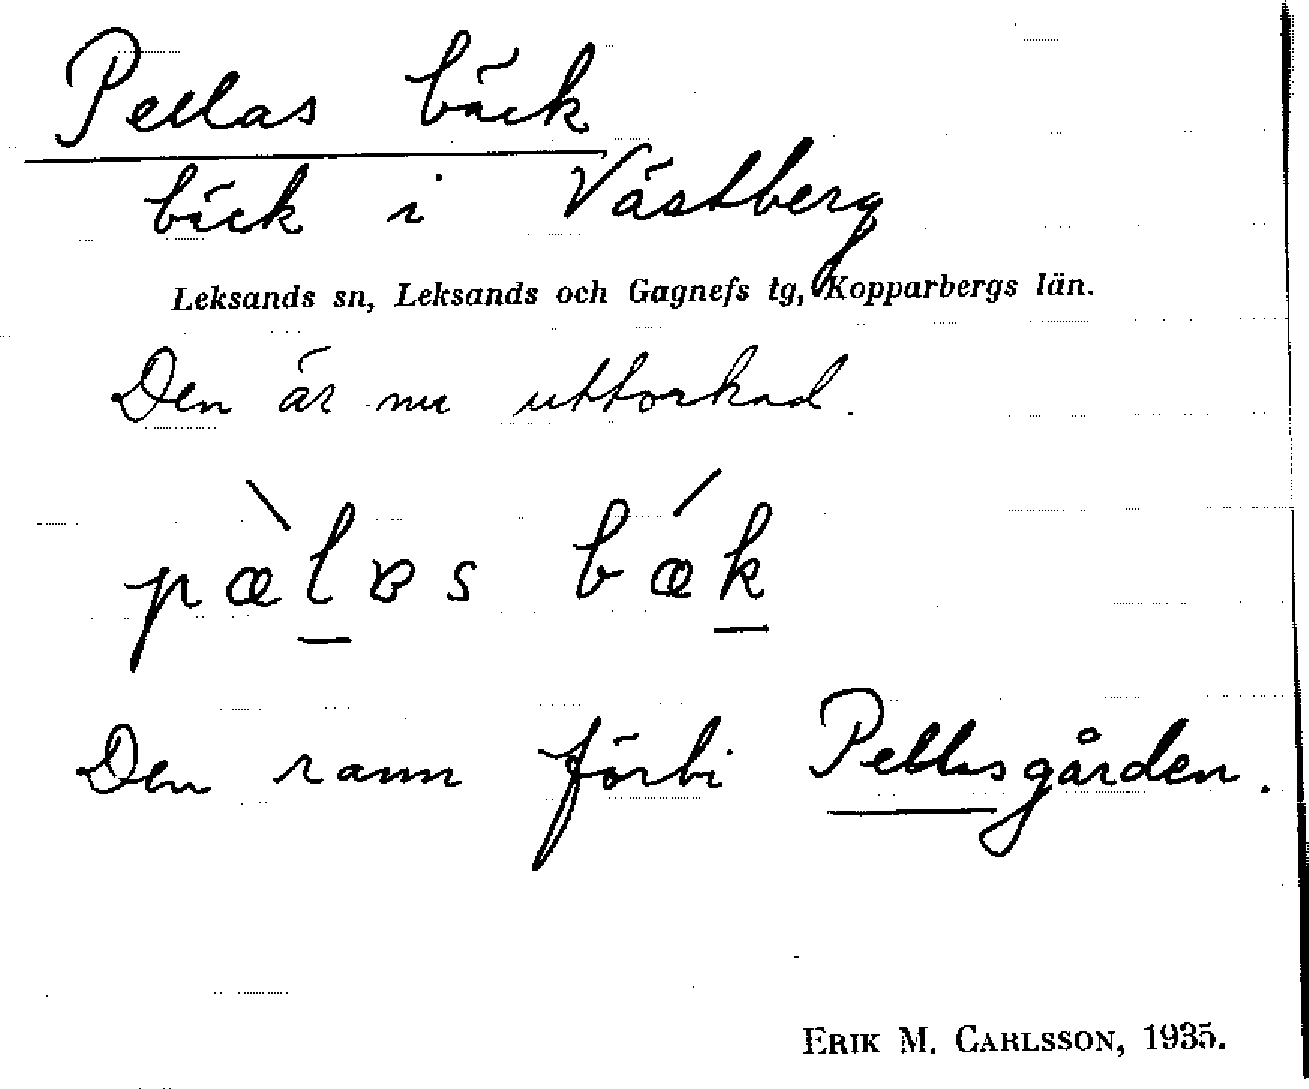 Pellas bäck
bäck i Västberg
Leksands sn, Leksands och Gagnefs tg, Kopparbergs län.
Den är nu uttorkad.
pæ̀l̲ɐs bǽk̲
Den rann förbi Pellasgården.
ERIK M. CARLSSON, 1935.